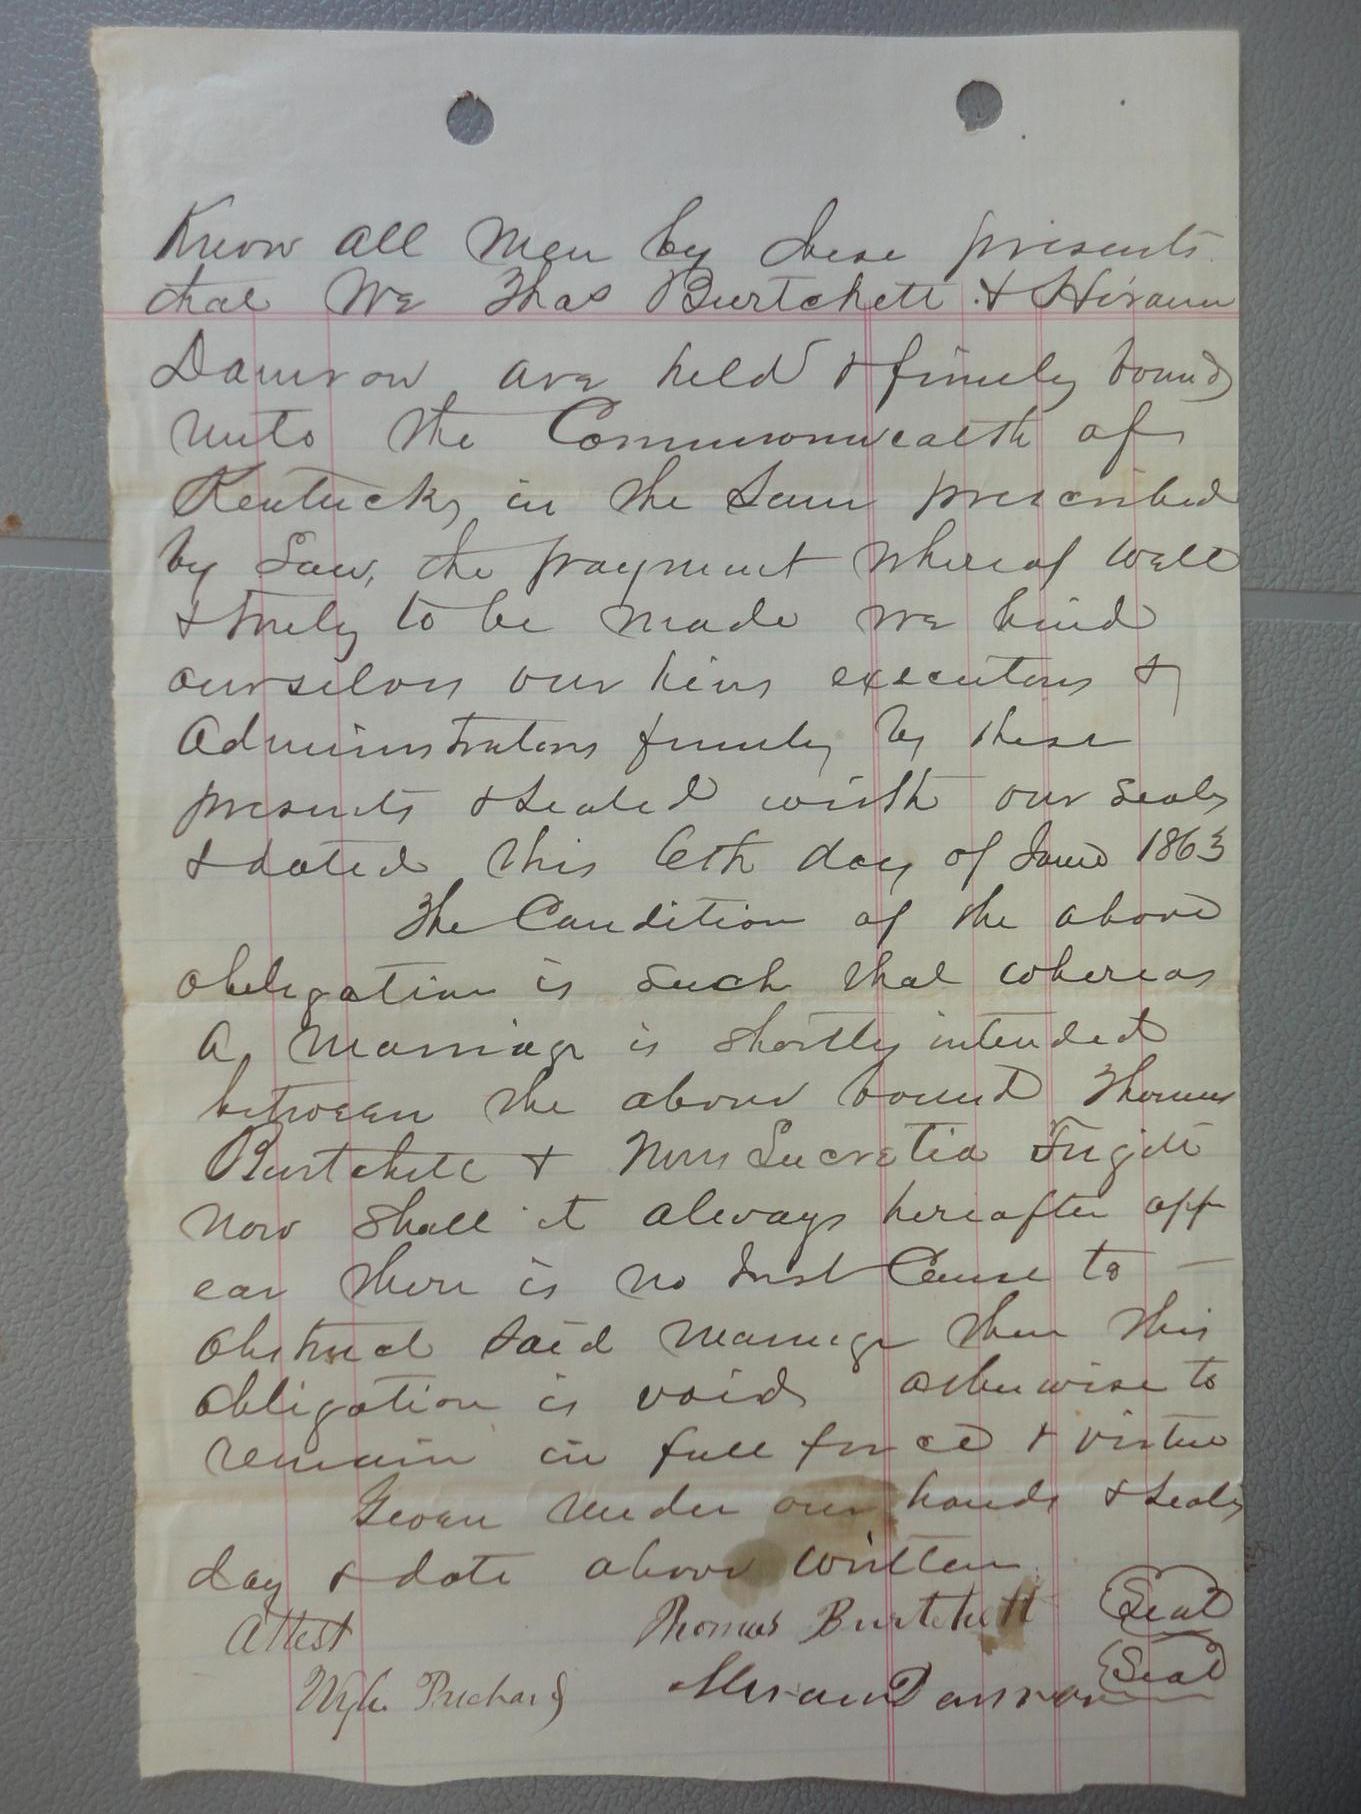 Know all Men by these presents
that We Thos Burtchett & Hiram
Damron are held & firmly bound
unto the Commonwealth of
Kentucky in the Sum prescribed
by Law, the payment whereof well
& truly to be made we bind
ourselves our heirs executors &
Administrators firmly by these
presents & sealed with our seals
& dated this 6th day of June 1863
The Condition of the above
obligation is such that whereas
A marriage is shortly intended
between the above bound Thomas
Burtchett & Lucretia
now shall it always hereafter app
ear there is no Just Cause to -
obstruct said marriage then this
obligation is void otherwise to
remain in full force & virtue
Given under our hands & seals
day & date above written
Attest Thomas Burtchett Seal
Prichard Hiram Damron Seal